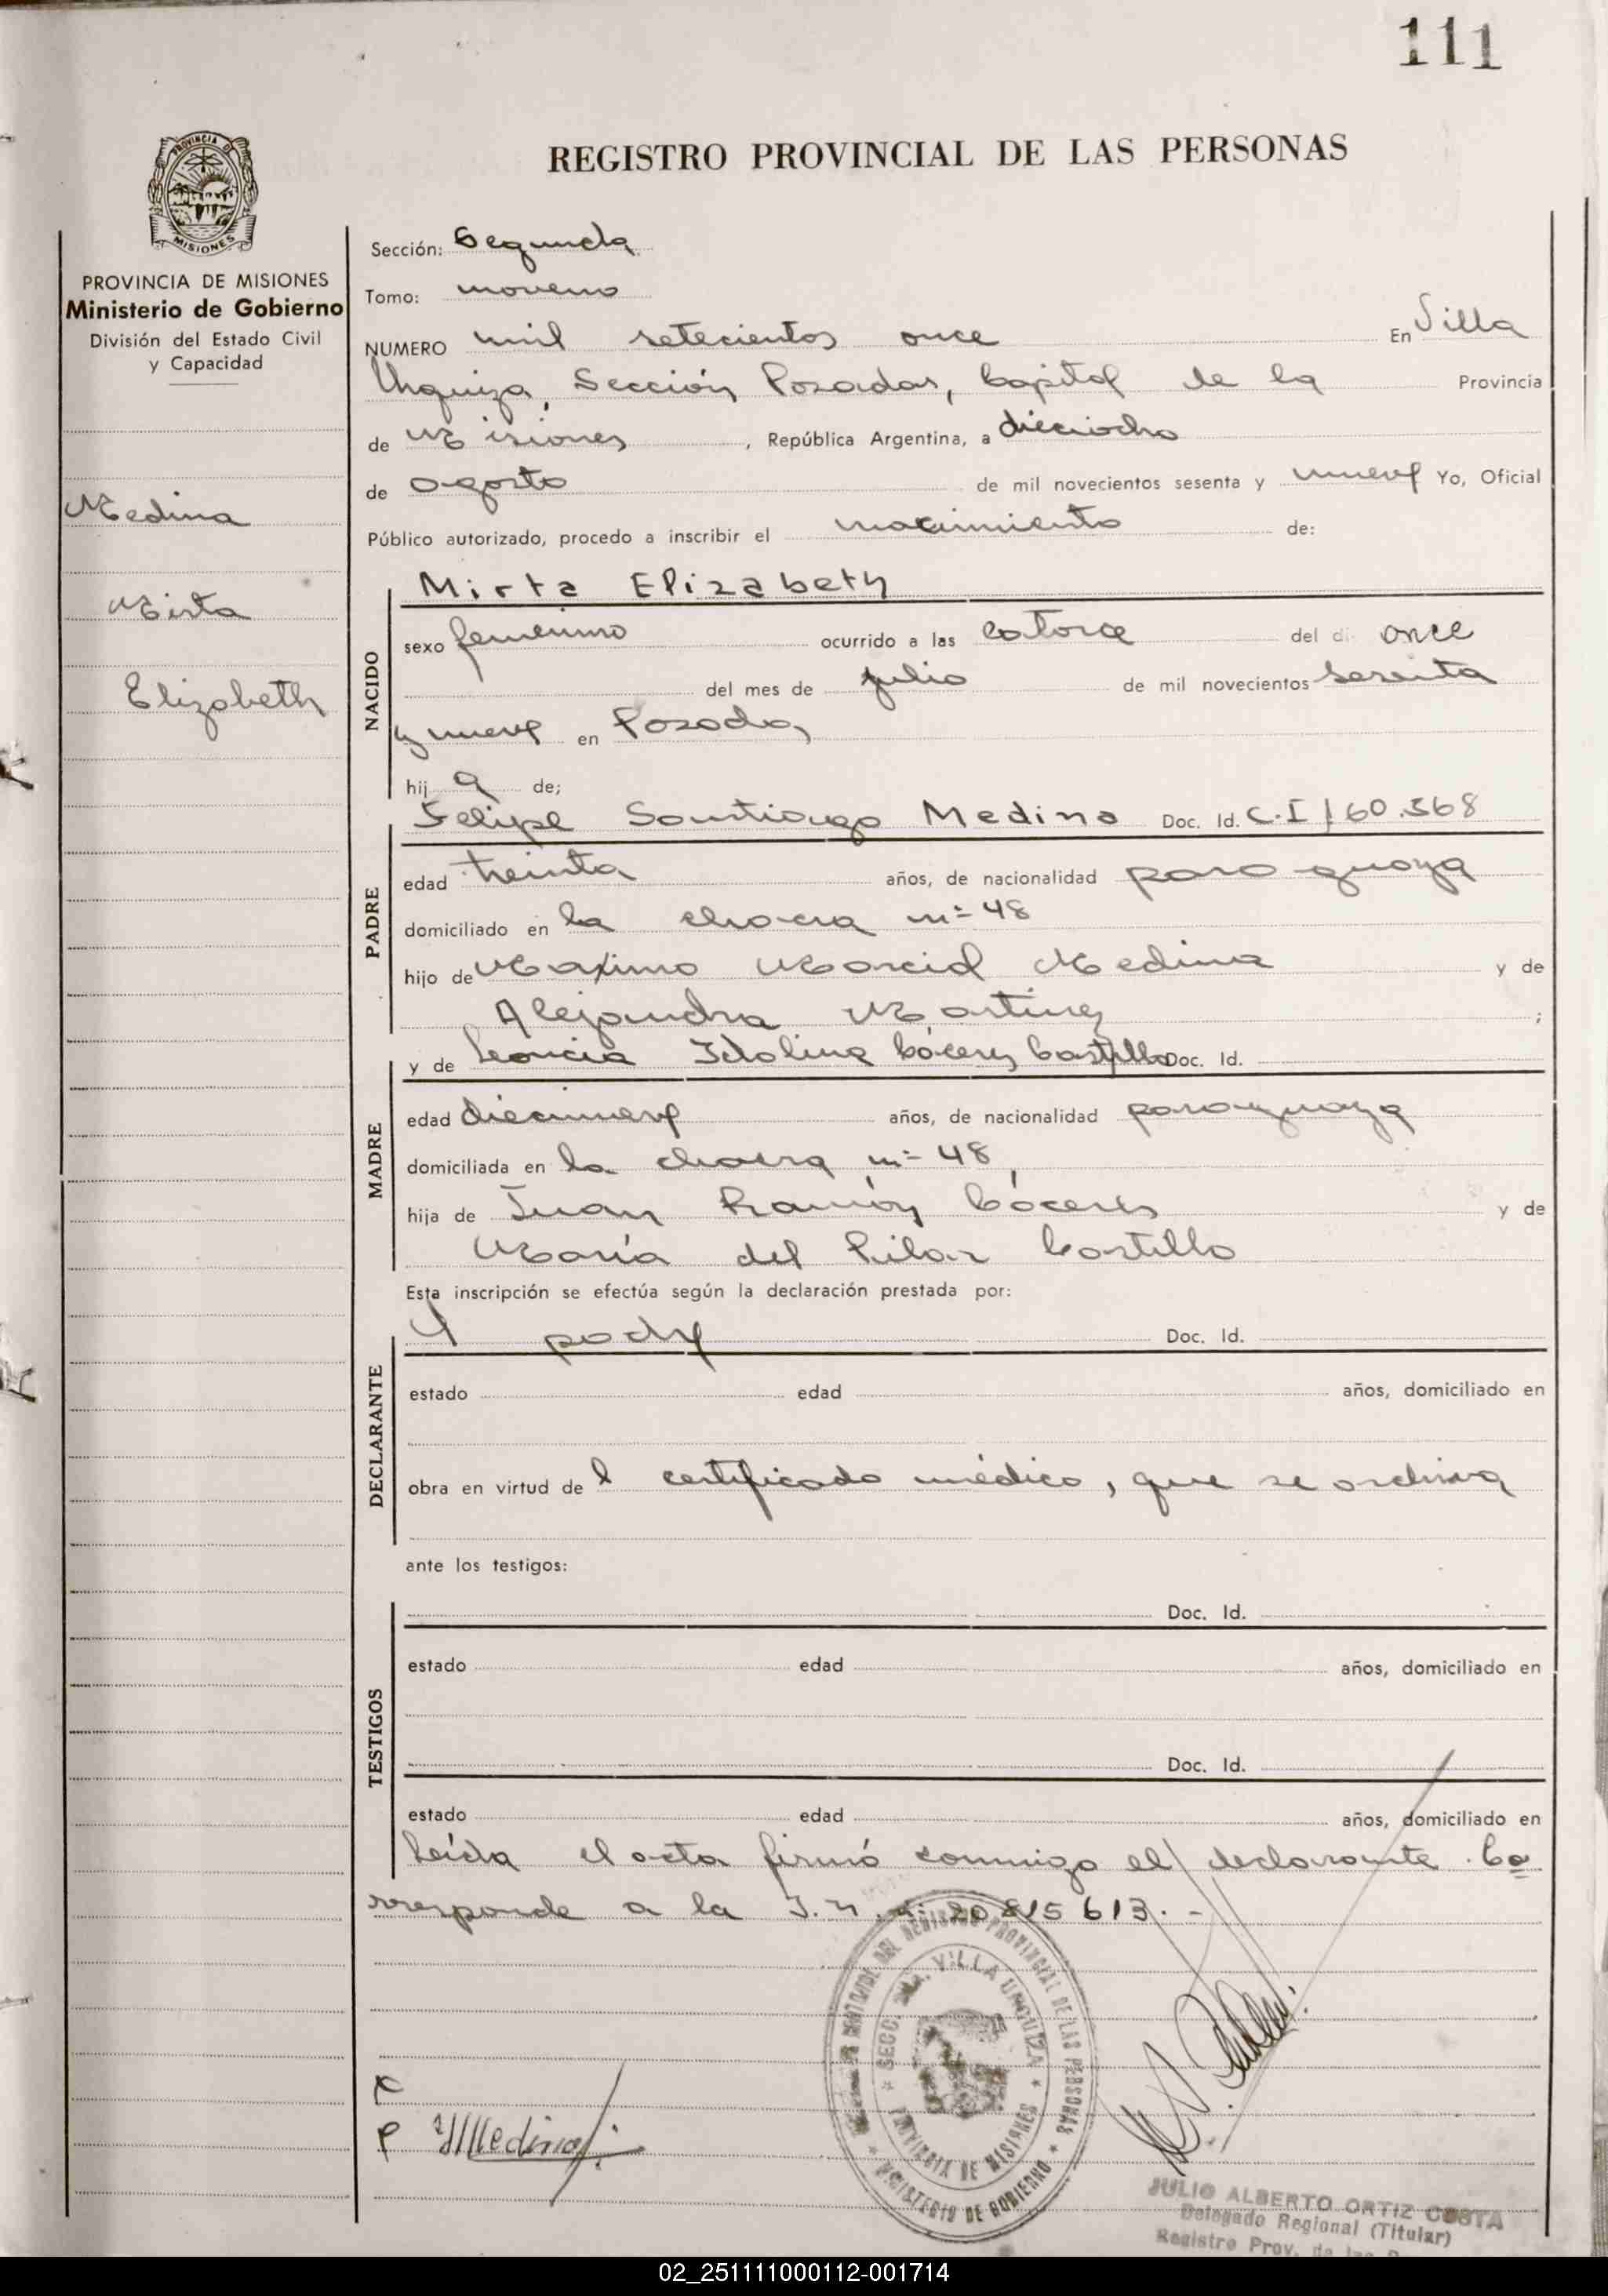 111
REGISTRO PROVINCIAL DE LAS PERSONAS
PROVINCIA DE
MISIONES
PROVINCIA DE MISIONES
Ministerio de Gobierno
División del Estado Civil
y Capacidad
Medina
Mirta
Elizabeth
Sección: Segunda
Tomo: noveno
NUMERO mil setecientos once En Villa
Urquiza, Sección Posadas, Capital de la Provincia
de Misiones, República Argentina, a dieciocho
de agosto de mil novecientos sesenta y nueve Yo, Oficial
Público autorizado, procedo a inscribir el nacimiento de:
NACIDO
Mirta Elizabeth
sexo femenino ocurrido a las catorce del di once
del mes de julio de mil novecientos sesenta
y nueve en Posadas
hij a de;
PADRE
Felipe Santiago Medina Doc. Id. C.I 160.368
edad treinta años, de nacionalidad paraguaya
domiciliado en la chacra nº 48
hijo de Maximo Marcial Medina y de
Alejandra Martinez ;
MADRE
y de Leoncia Idolina Cáceres Castillo Doc. Id.
edad diecinueve años, de nacionalidad paraguaya
domiciliada en la chacra nº 48,
hija de Juan Ramón Cáceres y de
María del Pilar Castillo
Esta inscripción se efectúa según la declaración prestada por:
DECLARANTE
el padre Doc. Id.
estado edad años, domiciliado en
obra en virtud del certificado médico, que se archiva
ante los testigos:
TESTIGOS
Doc. Id.
estado edad años, domiciliado en
Doc. Id.
estado edad años, domiciliado en
Leída el acta firmó conmigo el declarante. Co
rresponde a la I.N. 20.815613.-
REGISTRO PROVINCIAL DE LAS PERSONAS
SECC. VILLA URQUIZA
PROVINCIA DE MISIONES
MINISTERIO DE GOBIERNO
Medina
JULIO ALBERTO ORTIZ COSTA
Delegado Regional (Titular)
Registro Prov. de las
02_251111000112-001714